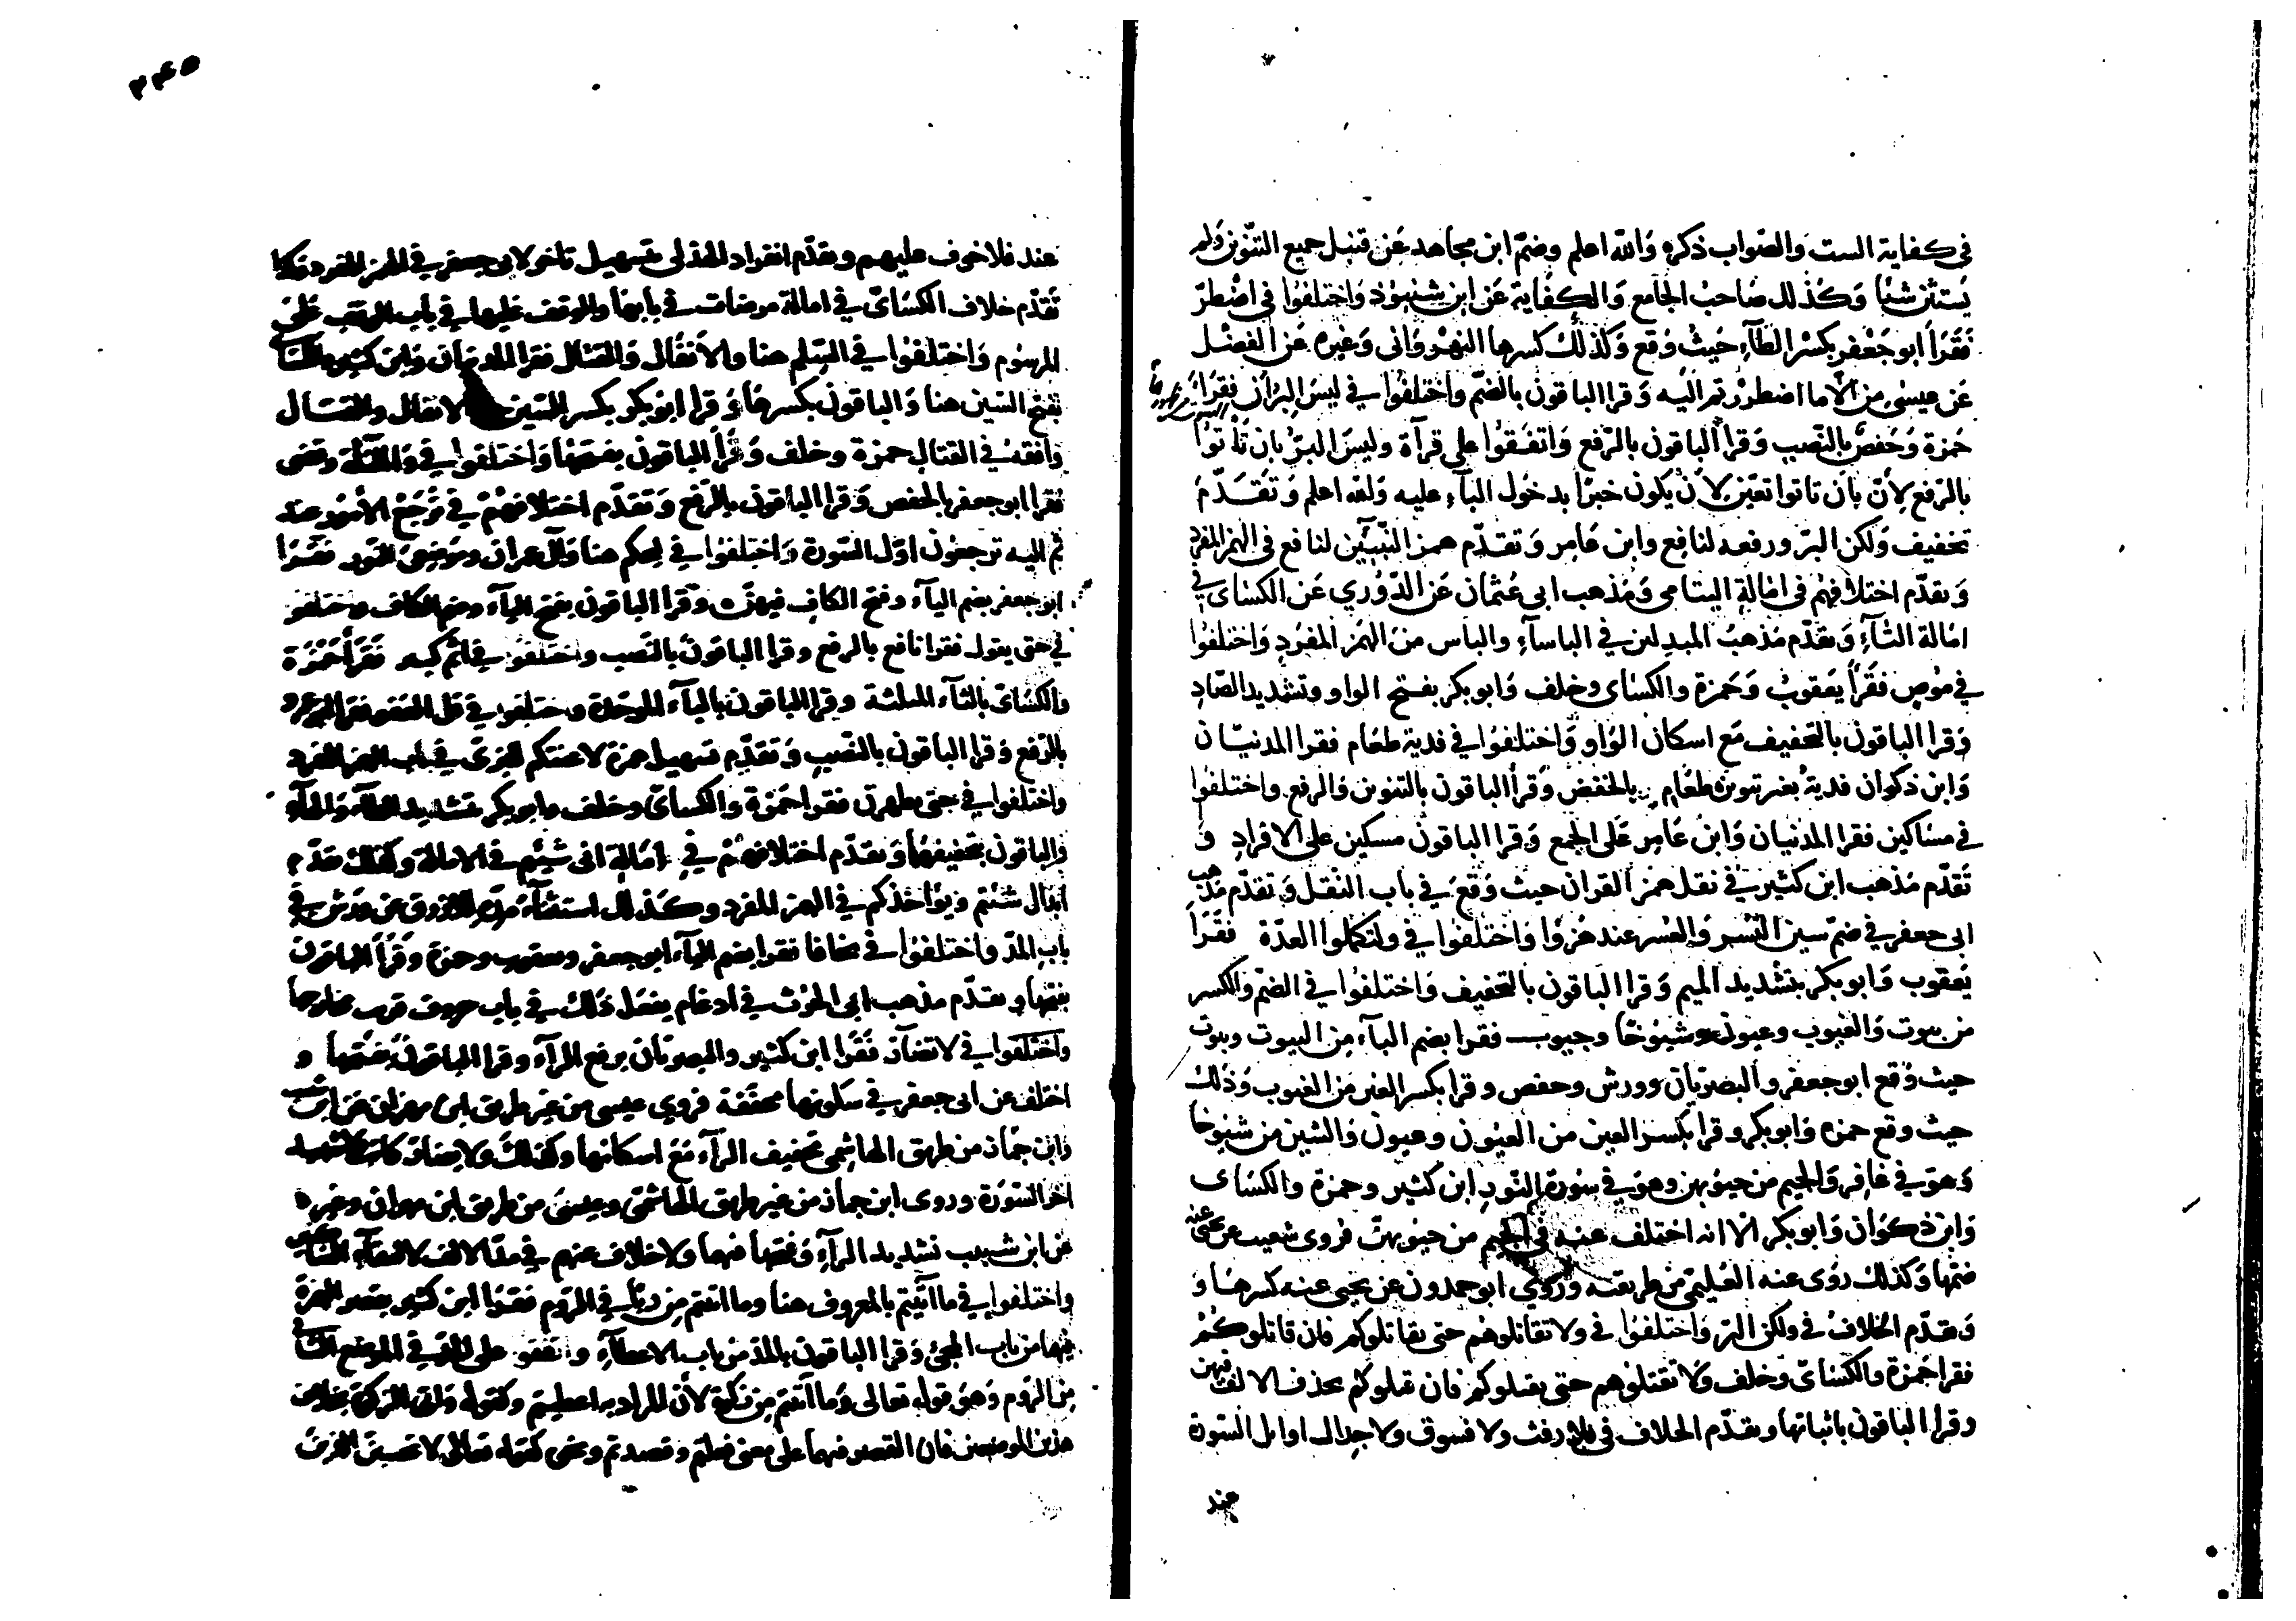 في كفاية الست والصواب ذكره والله اعلم وضم ابن مجاهد عن قنبل جميع التنوين ولم
يستثن شيئا وكذلك صاحب الجامع والكفاية عن ابن شنبوذ واختلفوا في اضطر
فقرأ ابو جعفر بكسر الطاء حيث وقع وكذلك كسرها النهرواني وغيره عن الفضل
عن عيسى من الا ما اضطررتم اليه وقرا الباقون بالضم واختلفوا في ليس البر ان فقرا
حمزة وحفص بالنصب وقرا الباقون بالرفع واتفقوا على قراة وليس البر بان تأتوا
بالرفع لان بان تاتوا تعين لان يكون خبرا بدخول الباء عليه والله اعلم وتقدم
تخفيف ولكن البر ورفعه لنافع وابن عامر وتقدم همز النبيين لنافع في الهمز المفرد
وتقدم اختلافهم في امالة اليتامى ومذهب ابى عثمان عن الدوري عن الكساى في
امالة التاء وتقدم مذهب المبدلين في الباساء والباس من الهمز المفرد واختلفوا
في موص فقرأ يعقوب وحمزة والكساى وخلف وابو بكر بفتح الواو وتشديد الصاد
وقرا الباقون بالتخفيف مع اسكان الواو واختلفوا في فدية طعام فقرا المدنيان
وابن ذكوان فدية بغير تنوين طعام بالخفض وقرأ الباقون بالتنوين والرفع واختلفوا
في مساكين فقرا المدنيان وابن عامر على الجمع وقرا الباقون مسكين على الافراد و
تقدم مذهب ابن كثير في نقل همز القران حيث وقع في باب النقل وتقدم مذهب
ابى جعفر في ضم سين اليسر والعسر عند هزوا واختلفوا في ولتكملوا العدة فقرا
يعقوب وابو بكر بتشديد الميم وقرا الباقون بالتخفيف واختلفوا في الضم والكسر
من بيوت والغيوب وعيون وشيوخا وجيوب فقرا بضم الباء من البيوت وبيوت
حيث وقع ابو جعفر والبصريان وورش وحفص وقرا بكسر الغين من الغيوب وذلك
حيث وقع حمزه وابو بكر وقرا بكسر العين من العيون وعيون والشين من شيوخا
وهو في غافر والجيم من جيوبهن وهو في سورة النور ابن كثير وحمزة والكساى
وابن ذكوان وابو بكر الا انه اختلف عنه في الجيم من جيوبهن فروى شعيب عن يحيى عنه
ضمها وكذلك روى عنه العليمي من طريقه وروي ابو حمدون عن يحيى عنه كسرها و
وتقدم الخلاف في ولكن البر واختلفوا في ولا تقاتلوهم حتى يقاتلوكم فان قاتلوكم
فقرا حمزة والكسائي وخلف ولا تقتلوهم حتى يقتلوكم فان قتلوكم بحذف الالف فيهن
وقرا الباقون باثباتها وتقدم الخلاف في فلا رفث ولا فسوق ولا جدال اوايل السورة
عند
عند فلا خوف عليهم وتقدم انفراد الهذلى بتسهيل تاخر لابى جعفر في الهمز المفرد وكذا
تقدم خلاف الكسائى في امالة مرضات في بابها والوقف عليها في باب الوقف على
المرسوم واختلفوا في السلم هنا والانفال والقتال فقرا المدنيان وابن كثير والكسا
بفتح السين هنا والباقون بكسرها وقرا ابو بكر بكسر السين الانفال والقتال
وافقه في القتال حمزة وخلف وقرا الباقون بفتحها واختلفوا في والملئكة وقضى
فقرا ابو جعفر بالخفض وقرا الباقون بالرفع وتقدم اختلافهم في ترجع الامور عند
ثم اليه ترجعون اول السورة واختلفوا في ليحكم هنا وال عمران وموضعى النور فقرا
ابو جعفر بضم الياء وفتح الكاف فيهن وقرا الباقون بفتح الياء وضم الكاف واختلفوا
في حتى يقول فقرا نافع بالرفع وقرا الباقون بالنصب واختلفوا في اثم كبير فقرأ حمزة
والكسائى بالثاء المثلثة وقرا الباقون بالباء الموحدة واختلفوا في قل العفو فقرا ابو عمرو
بالرفع وقرا الباقون بالنصب وتقدم تسهيل همزة لاعنتكم للبزى في باب الهمز المفرد
واختلفوا في حتى يطهرن فقرا حمزة والكسائى وخلف وابو بكر بتشديد الطاء والهاء
والباقون بتخفيفهما وتقدم اختلافهم في امالة انى شئتم في الامالة وكذلك تقدم
ابدال شئتم ويؤاخذكم في الهمز المفرد وكذلك استثناء الازرق عن ورش في
باب المد واختلفوا في يخافا فقرا بضم الياء ابو جعفر ويعقوب وحمزة وقرأ الباقون
بفتحها وتقدم مذهب ابى الحرث في ادغام يفعل ذلك في باب حروف قربت مخارجها
واختلفوا في لا تضآر فقرا ابن كثير والبصريان برفع الراء وقرا الباقون بفتحها و
اختلف عن ابى جعفر في سكونها مخففة فروي عيسى من غير طريق ابن مهران عن ابن شبيب
وابن جماز من طريق الهاشمى تخفيف الراء مع اسكانها وكذلك ولا يضار كاتب ولا شهيد
اخر السورة وروى ابن جماز من غير طريق الهاشمى وعيسى من طريق ابن مهران وغيره
عن ابن شبيب تشديد الراء وفتحها فيهما ولا خلاف عنهم في مد الالف لالتقاء الساكنين
واختلفوا في ما اتيتم بالمعروف هنا وما اتيتم من ربا في الروم فقرا ابن كثير بقصر الهمزة
فيهما من باب المجئ وقرا الباقون بالمد من باب الاعطاء واتفقو على المد في الموضع الثانى
من الروم وهو قوله تعالى وما آتيتم من زكوة لان المراد به اعطيتم وكقوله وايتى الزكوة بخلاف
هذين الموضعين فان القصر فيهما على معنى فعلتم وقصدتم ونحوه كقوله تعالى لا تحسبن الذين